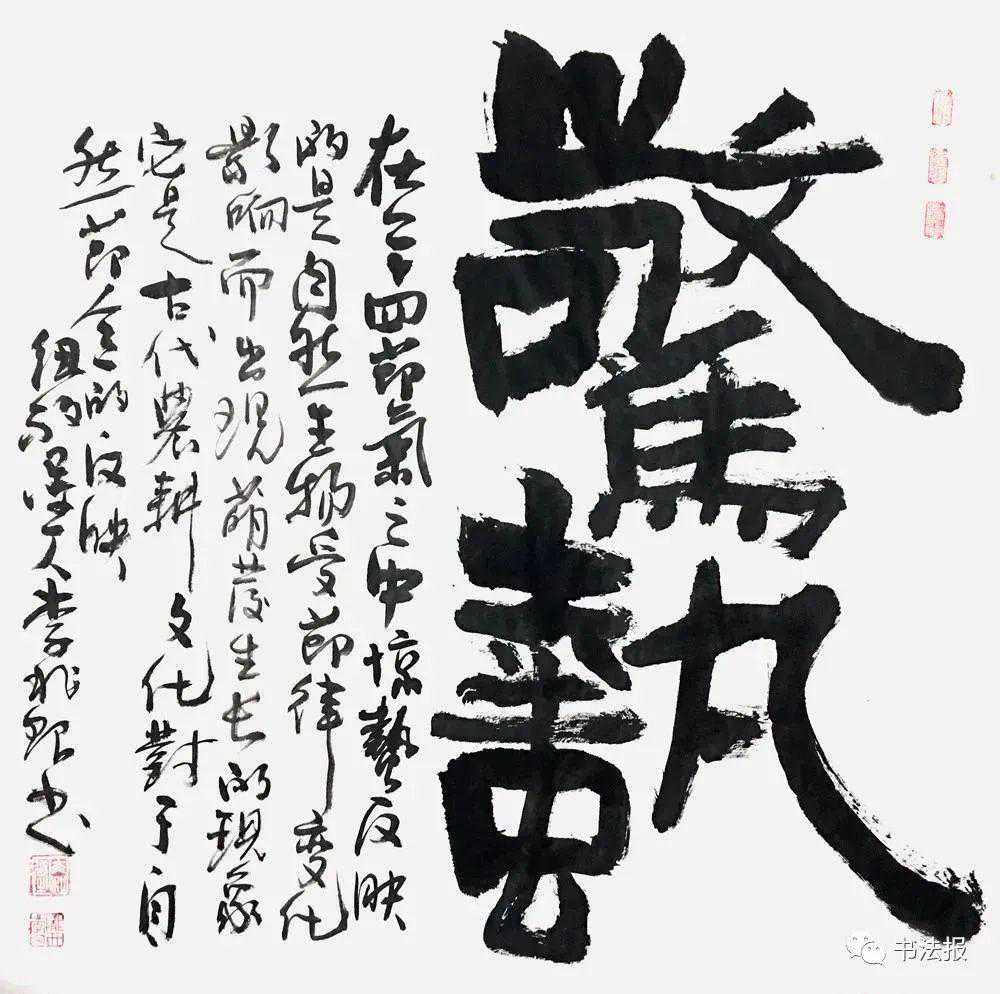 驚蟄
在二十四節氣之中惊蟄反映
的是自然生物受節律变化
影响而出現萌發生长的現象
它是古代農耕文化對于自
然節令的反映
堂人李
书法报